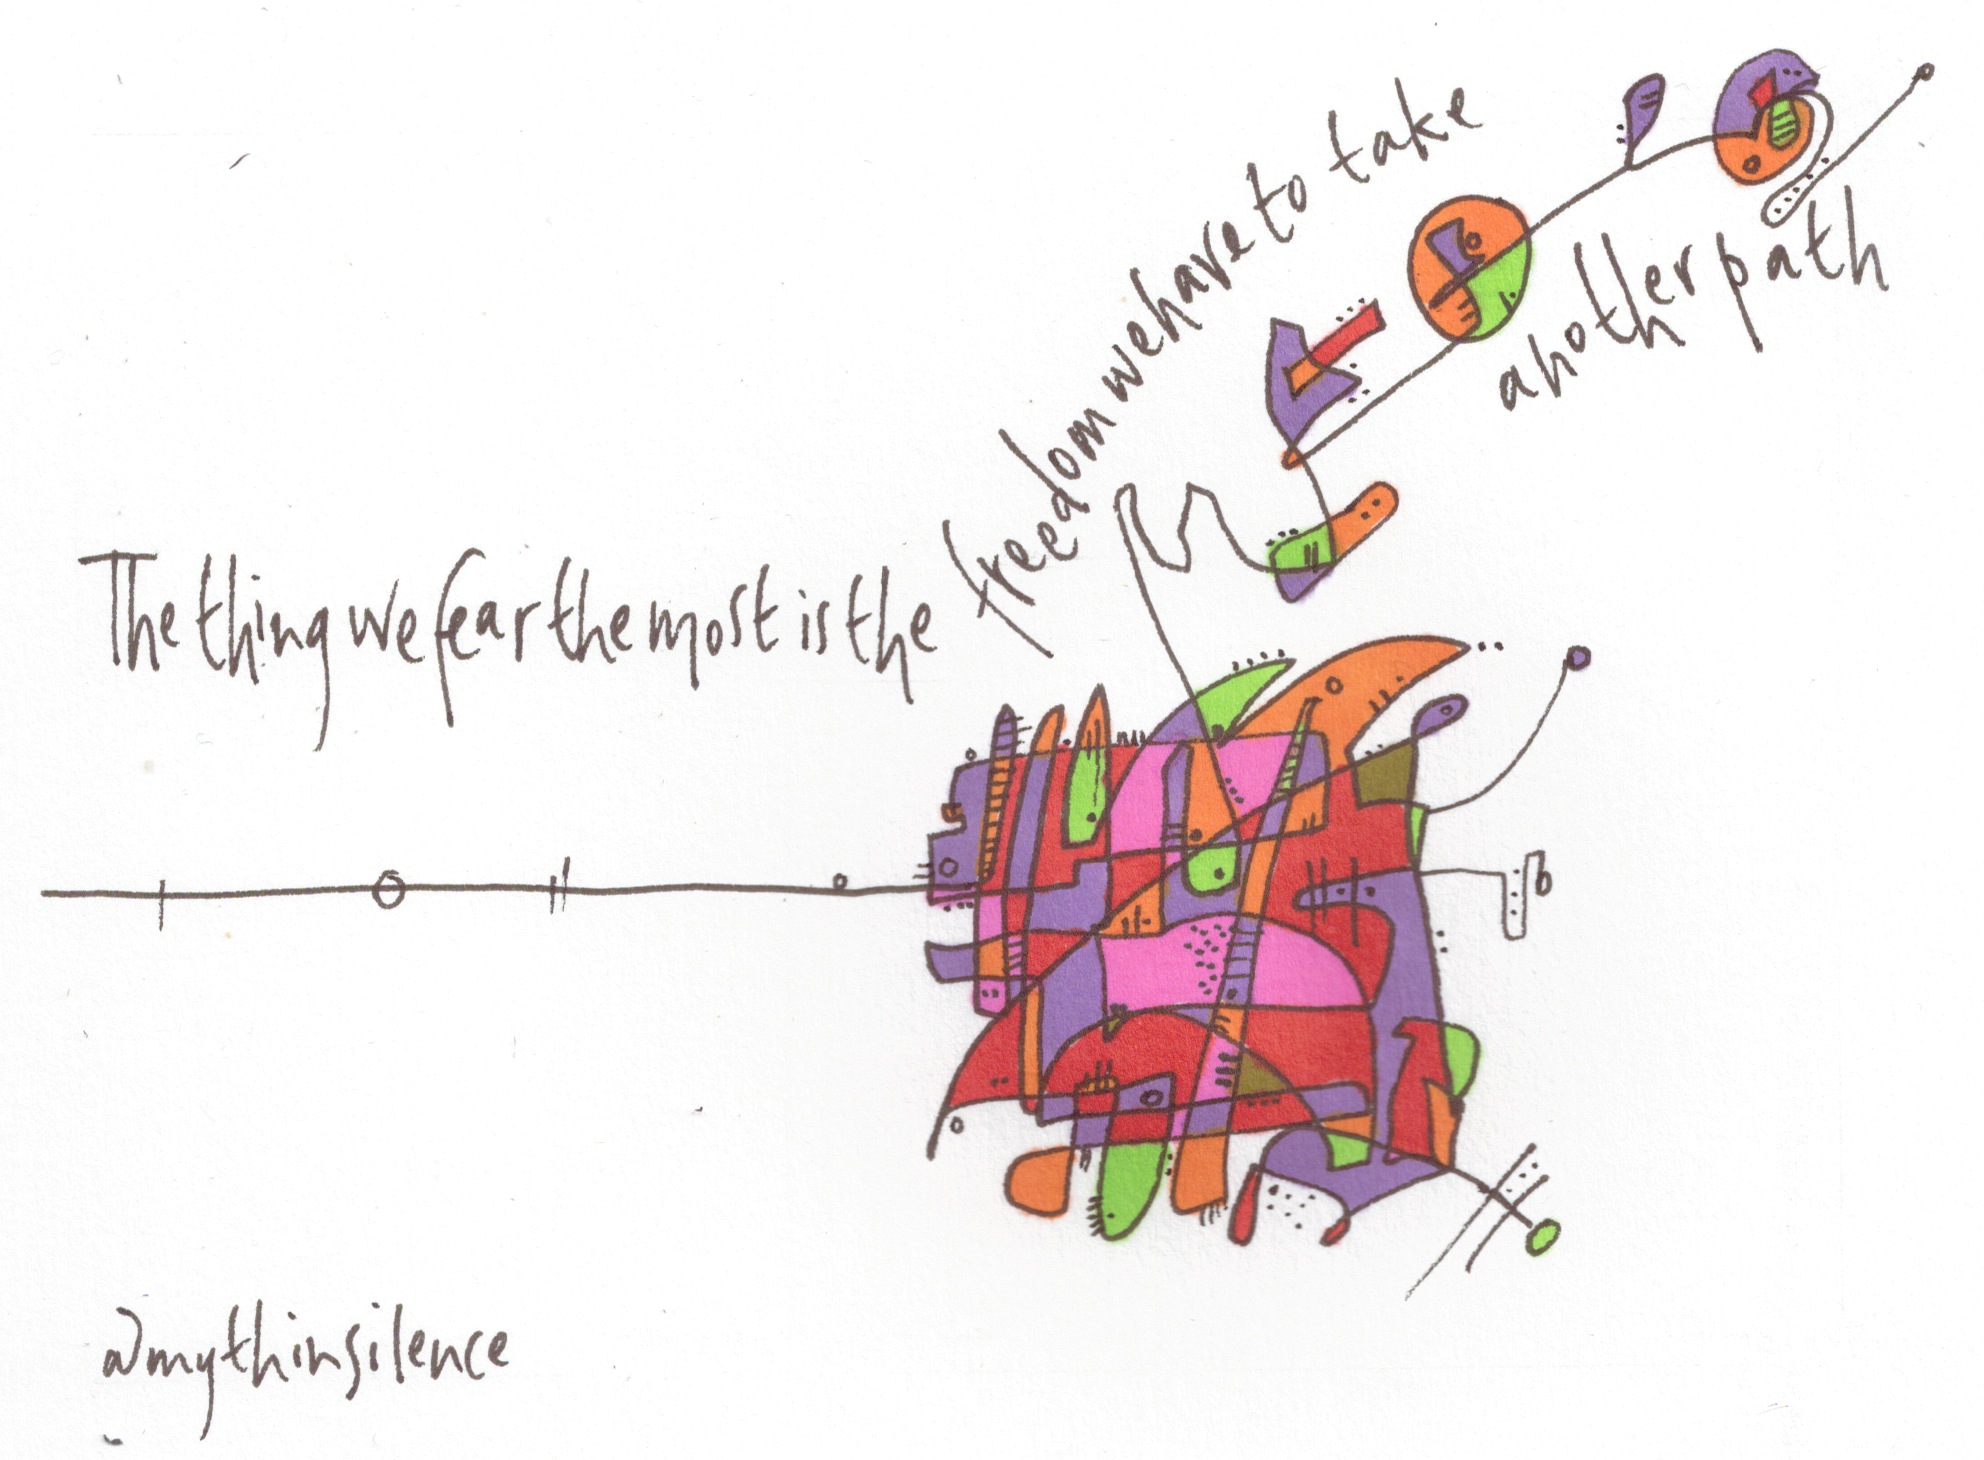 The thing we fear the most is the freedom we have to take
another path
@mythinsilence